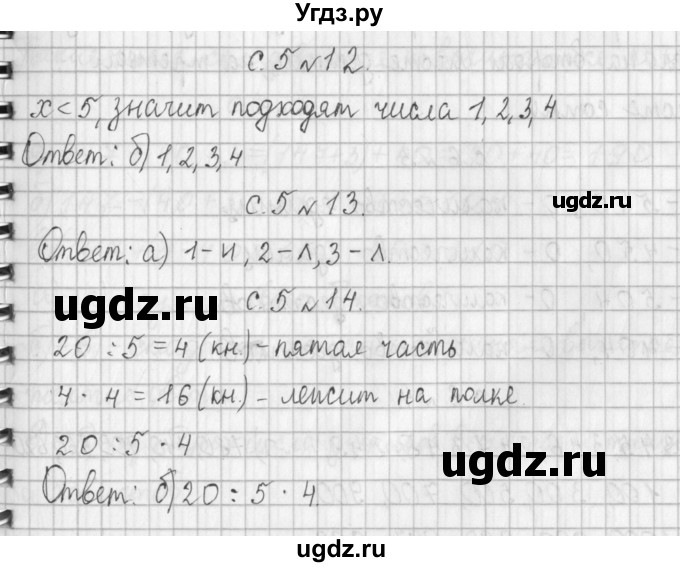 Угдз.ру
с. 5 №12.
x < 5, значит подходят числа 1, 2, 3, 4
Ответ: б) 1, 2, 3, 4
с. 5 №13.
©gdz.ru
Ответ: а) 1 - И, 2 - Л, 3 - Л.
ugdz.ru
с. 5 №14.
20 : 5 = 4 (кн.) - пятая часть
4 · 4 = 16 (кн.) - лежит на полке.
20 : 5 · 4
ugdz.ru
Ответ: б) 20 : 5 · 4.
ugdz.ru